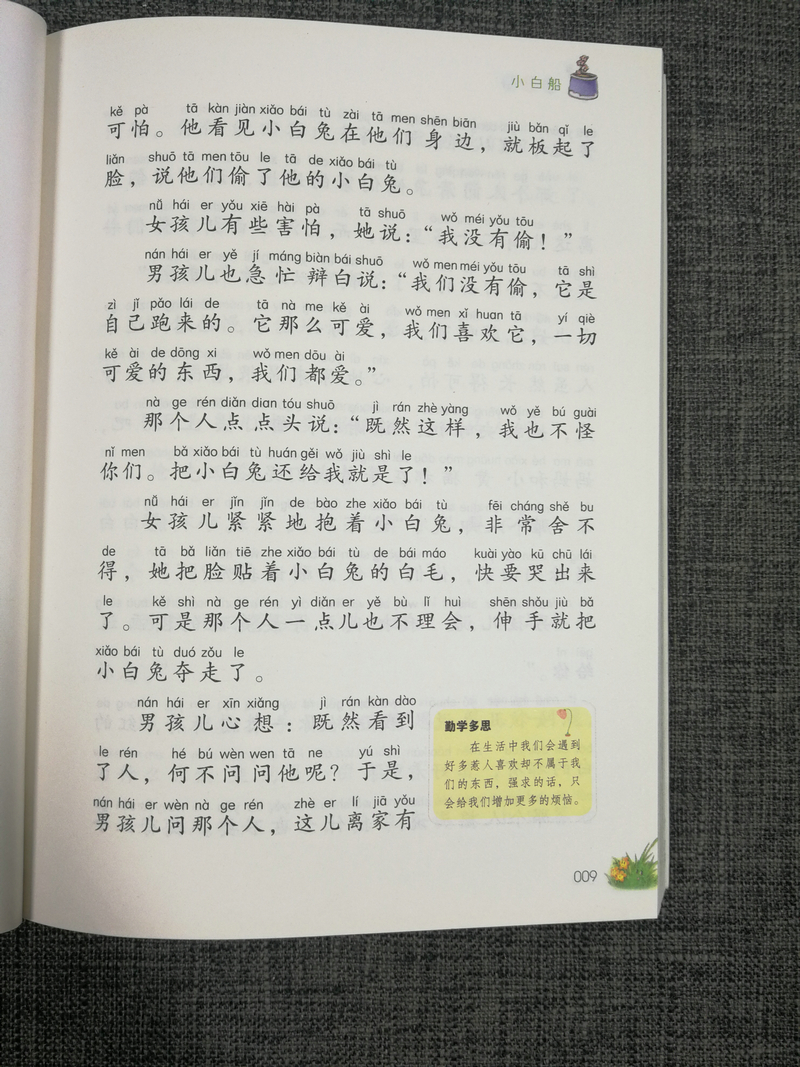 小白船
kě pà tā kàn jiàn xiǎo bái tù zài tā men shēn biān jiù bǎn qǐ le
可怕。他看见小白兔在他们身边，就板起了
liǎn shuō tā men tōu le tā de xiǎo bái tù
脸，说他们偷了他的小白兔。
nǚ hái er yǒu xiē hài pà tā shuō wǒ méi yǒu tōu
女孩儿有些害怕，她说：“我没有偷！”
nán hái er yě jí máng biàn bái shuō wǒ men méi yǒu tōu tā shì
男孩儿也急忙辩白说：“我们没有偷，它是
zì jǐ pǎo lái de tā nà me kě ài wǒ men xǐ huan tā yí qiè
自己跑来的。它那么可爱，我们喜欢它，一切
kě ài de dōng xi wǒ men dōu ài
可爱的东西，我们都爱。”
nà ge rén diǎn dian tóu shuō jì rán zhè yàng wǒ yě bú guài
那个人点点头说：“既然这样，我也不怪
nǐ men bǎ xiǎo bái tù huán gěi wǒ jiù shì le
你们。把小白兔还给我就是了！”
nǚ hái er jǐn jǐn de bào zhe xiǎo bái tù fēi cháng shě bu
女孩儿紧紧地抱着小白兔，非常舍不
de tā bǎ liǎn tiē zhe xiǎo bái tù de bái máo kuài yào kū chū lái
得，她把脸贴着小白兔的白毛，快要哭出来
le kě shì nà ge rén yì diǎn er yě bù lǐ huì shēn shǒu jiù bǎ
了。可是那个人一点儿也不理会，伸手就把
xiǎo bái tù duó zǒu le
小白兔夺走了。
nán hái er xīn xiǎng jì rán kàn dào
男孩儿心想：既然看到
le rén hé bú wèn wen tā ne yú shì
了人，何不问问他呢？于是，
nán hái er wèn nà ge rén zhè er lí jiā yǒu
男孩儿问那个人，这儿离家有
勤学多思
在生活中我们会遇到
好多惹人喜欢却不属于我
们的东西，强求的话，只
会给我们增加更多的烦恼。
009